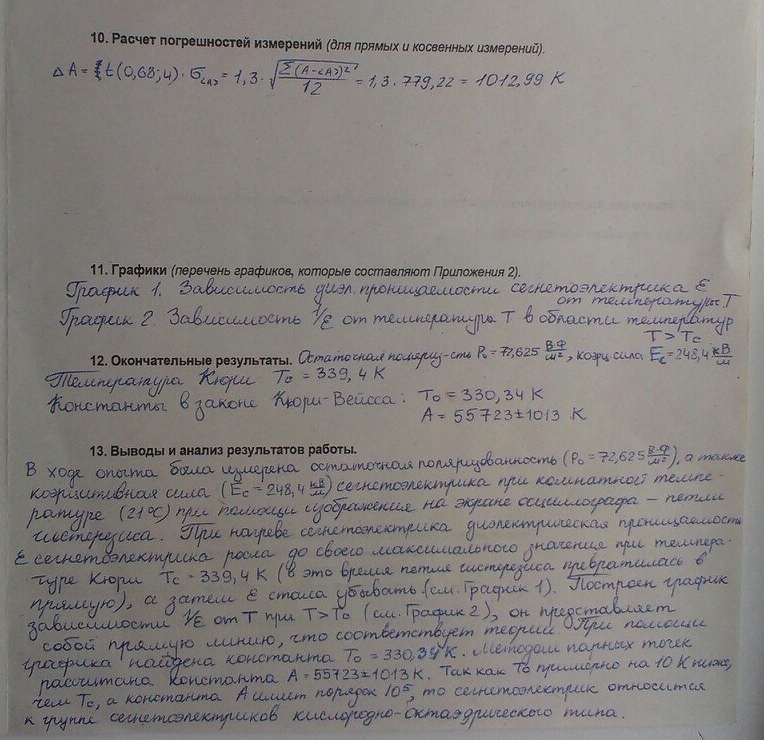 10. Расчет погрешностей измерений (для прямых и косвенных измерений).
ΔA = t(0,68; 4) · σ<A> = 1,3 · √(Σ(A-<A>)²/12) = 1,3 · 779,22 = 1012,99 К
11. Графики (перечень графиков, которые составляют Приложения 2).
График 1. Зависимость диэл. проницаемости сегнетоэлектрика ε
от температуры T
График 2. Зависимость 1/ε от температура T в области температур
T > Tc
12. Окончательные результаты. Остаточная поляриз-сть P₀ = 72,625 В·Ф/м², коэрц. сила Ec = 248,4 кВ/м
Температура Кюри Tc = 339,4 К
Константы в законе Кюри-Вейсса: T₀ = 330,34 К
A = 55723±1013 К
13. Выводы и анализ результатов работы.
В ходе опыта была измерена остаточная поляризованность (P₀ = 72,625 В·Ф/м²), а также
коэрцитивная сила (Ec = 248,4 кВ/м) сегнетоэлектрика при комнатной темпе-
ратуре (21°С) при помощи изображения на экране осциллографа – петли
гистерезиса. При нагреве сегнетоэлектрика диэлектрическая проницаемость
ε сегнетоэлектрика росла до своего максимального значения при темпера-
туре Кюри Tc = 339,4 К (в это время петля гистерезиса превратилась в
прямую), а затем ε стала убывать (см. График 1). Построен график
зависимости 1/ε от T при T > Tc (см. График 2), он представляет
собой прямую линию, что соответствует теории. При помощи
графика найдена константа T₀ = 330,34 К. Методом парных точек
расчитана константа A = 55723±1013 К. Так как T₀ примерно на 10 К ниже,
чем Tc, а константа A имеет порядок 10⁵, то сегнетоэлектрик относится
к группе сегнетоэлектриков кислородно-октаэдрического типа.